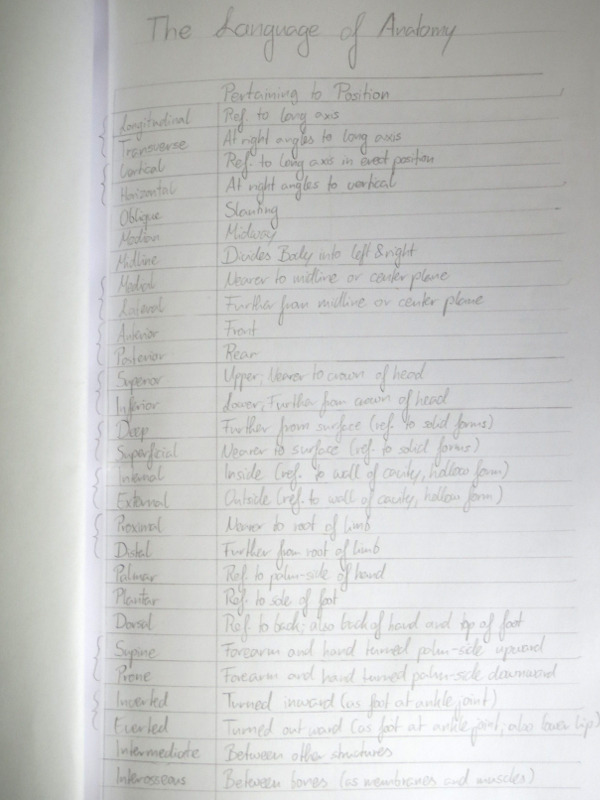 The Language of Anatomy
Pertaining to Position
Longitudinal Ref. to long axis
Transverse At right angles to long axis
Vertical Ref. to long axis in erect position
Horizontal At right angles to vertical
Oblique Slanting
Median Midway
Midline Divides Body into left & right
Medial Nearer to midline or center plane
Lateral Further from midline or center plane
Anterior Front
Posterior Rear
Superior Upper; Nearer to crown of head
Inferior Lower; Further from crown of head
Deep Further from surface (ref. to solid forms)
Superficial Nearer to surface (ref. to solid forms)
Internal Inside (ref. to wall of cavity, hollow form)
External Outside (ref. to wall of cavity, hollow form)
Proximal Nearer to root of limb
Distal Further from root of limb
Palmar Ref. to palm-side of hand
Plantar Ref. to sole of foot
Dorsal Ref. to back; also back of hand and top of foot
Supine Forearm and hand turned palm-side upward
Prone Forearm and hand turned palm-side downward
Inverted Turned inward (as foot at ankle joint)
Everted Turned outward (as foot at ankle joint; also lower lip)
Intermediate Between other structures
Interosseous Between bones (as membranes and muscles)